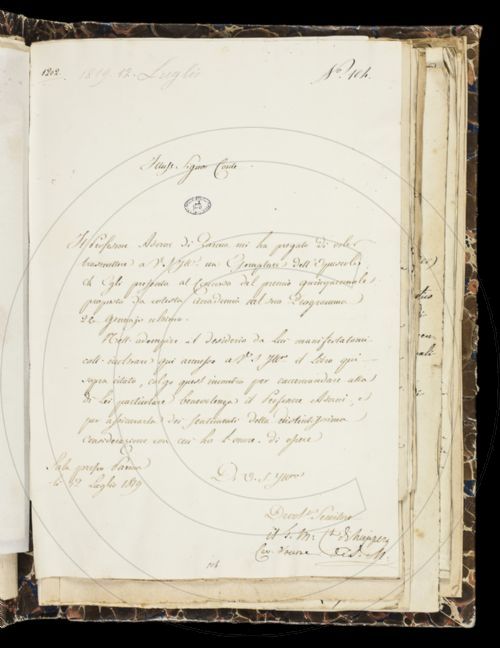 1202. 1819. 12. Luglio N.º 104.
Illust. Signor Conte
Il Professore Asioni di Parma mi ha pregato di vole
trasmettere a V.S. Ill.ma un Esemplare dell'Opuscolo
ch'Egli presenta al Concorso del premio quinquennale
proposto da cotesta Accademia dal suo Programma
22. Gennajo ultimo.
Nell'adempiere il desiderio da lui manifestatomi
coll'inoltrare qui annesso a V.S. Ill.ma il Libro qui
sopra citato, colgo quest'incontro per raccomandare alla
di Lei particolare benevolenza il Professore Asioni, e
per assicurarla dei sentimenti della distintissima
considerazione con cui ho l'onore di essere
Sala presso Parma
li 12 Luglio 1819
Di V.S. Ill.ma
Devot.º Servitore
104